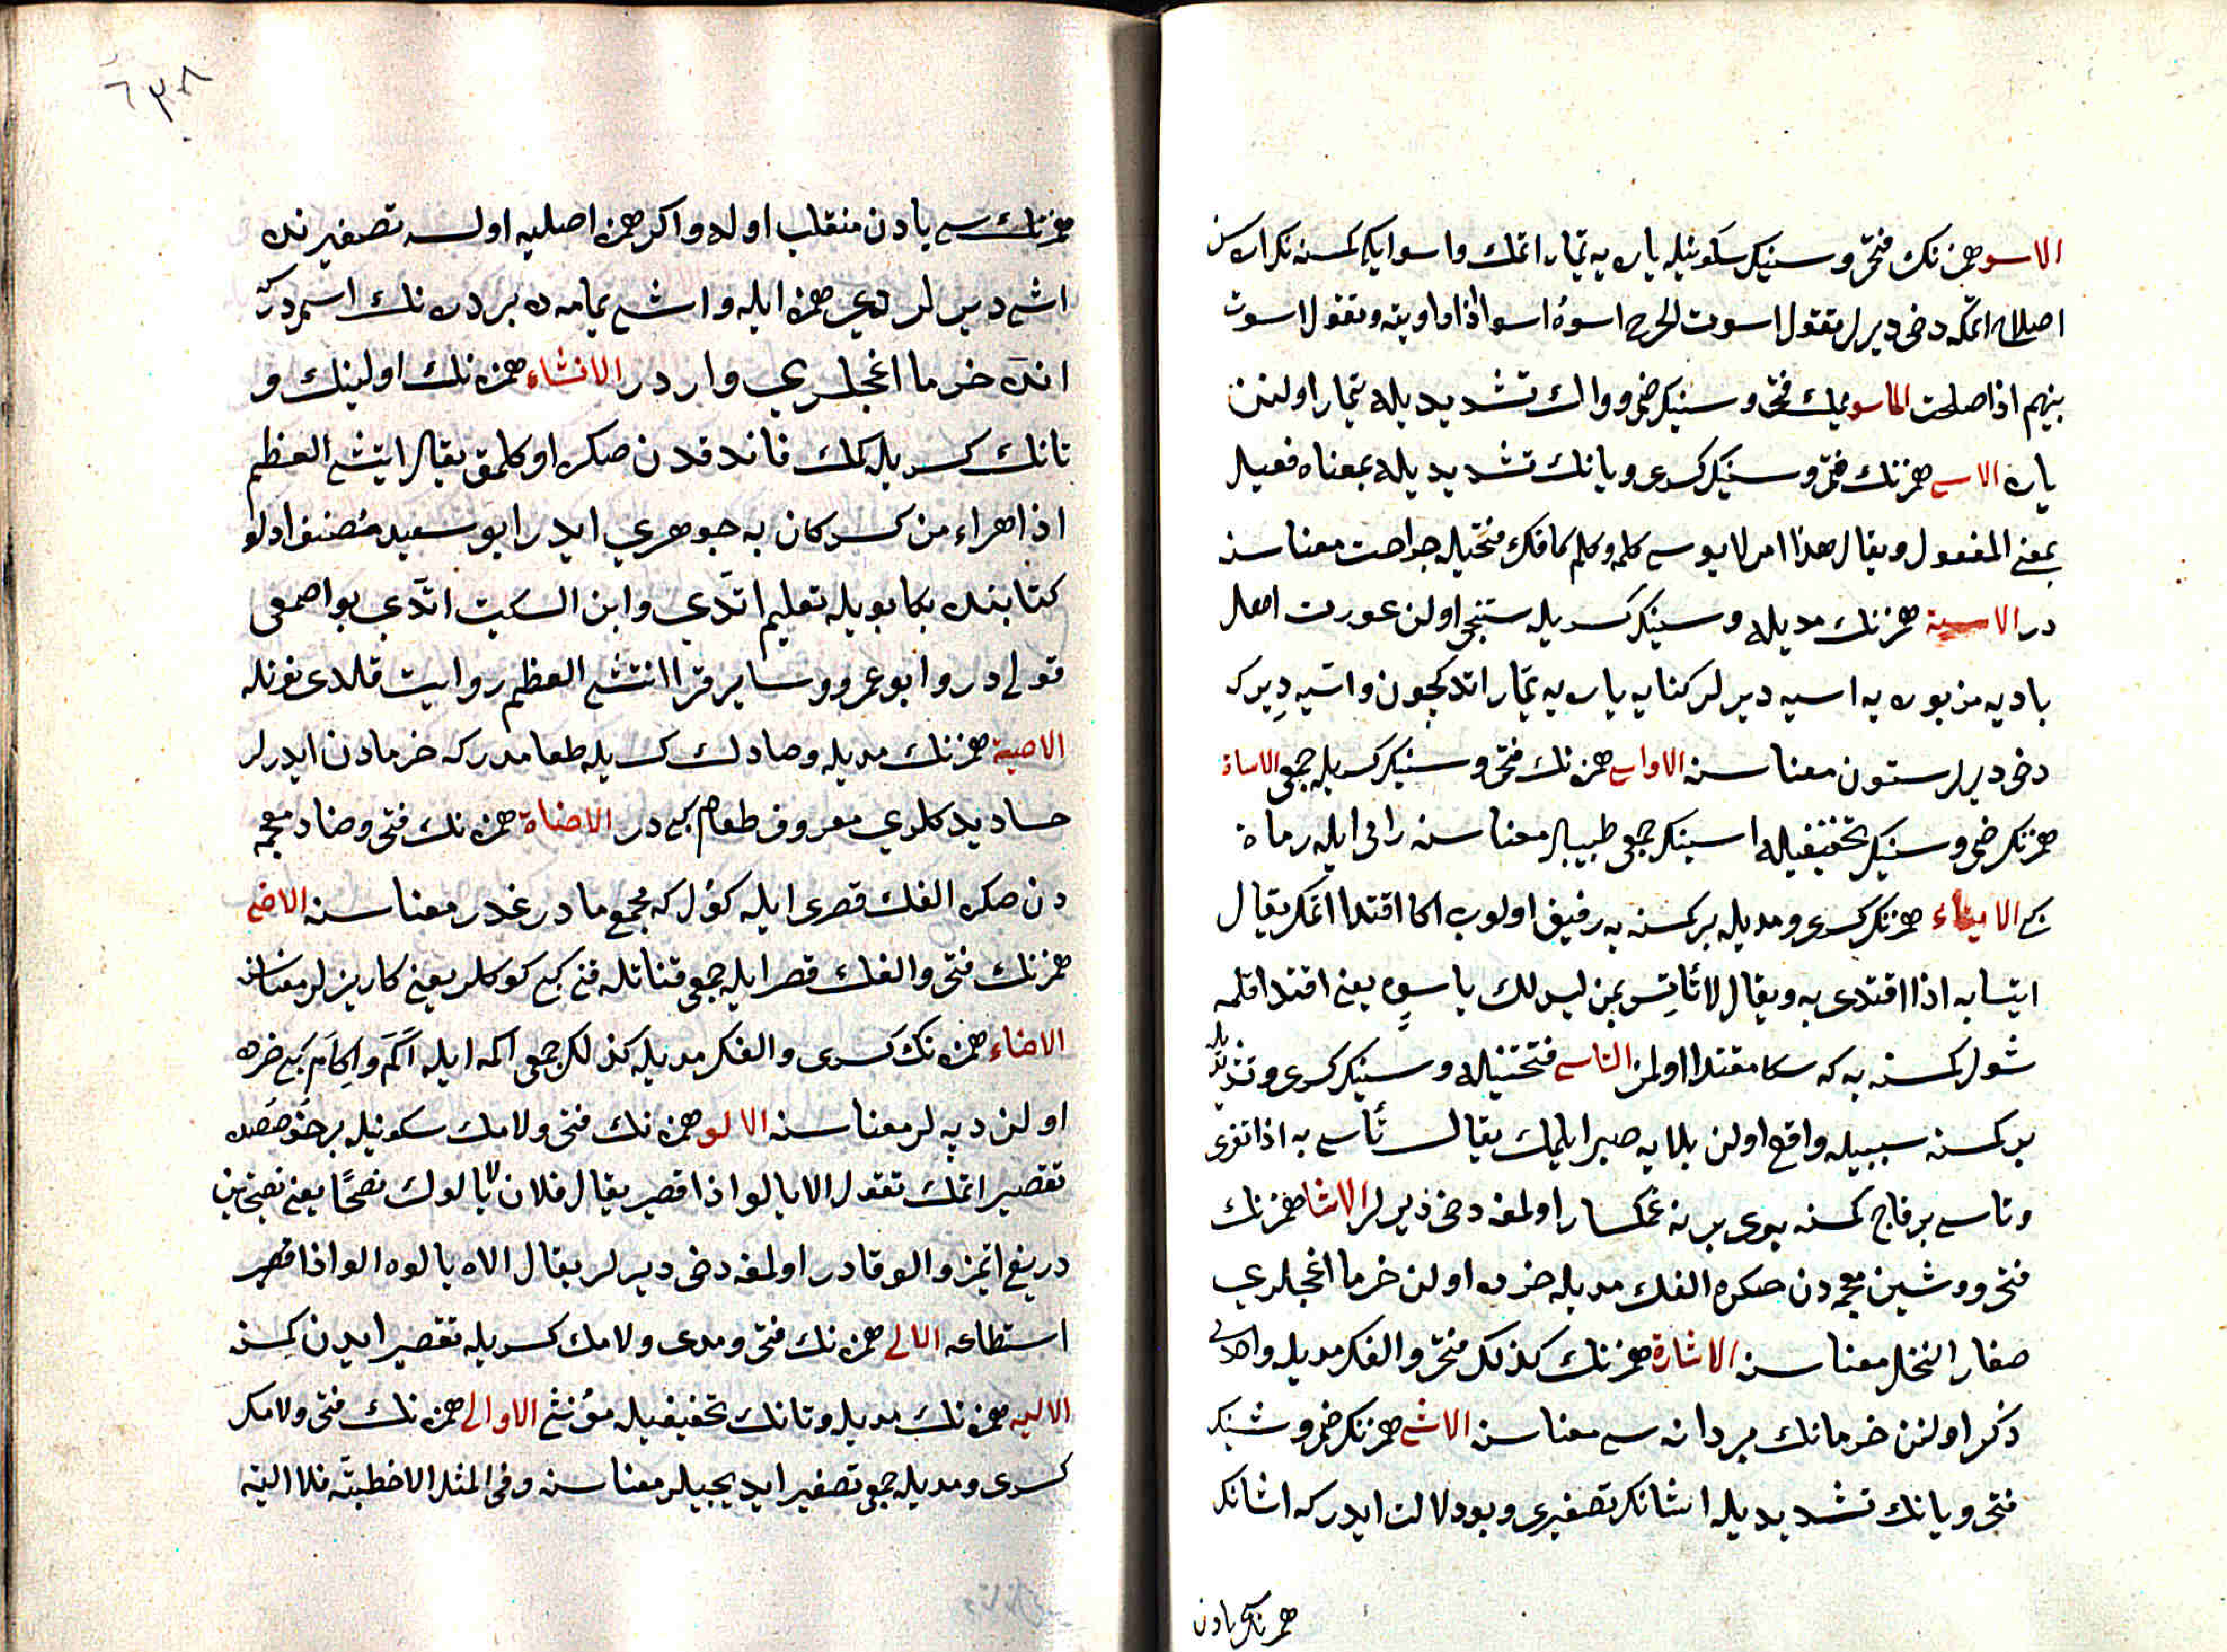 الاسو همزنك فتحى و سينيك سكونيله ياره يه تيمار اتمك و اسو ايكى كمسنه نك اراسن
اصلاح اتمكه دخى ديرلر تقول اسوت الجرح اسوه اسوا اذا داويته وتقول اسوت
بينهم اذا اصلحت الماسو ميمك فتحى و سينيك ضمى و واوك تشديديله تيمار اولنن
ياره الاسى همزنك فتحى و سينيك كسرى و يانك تشديديله بمعناه فعيل
بمعنى المفعول ويقال هذا امر لا يوسى كلمه وكلم كافك فتحيله جراحت معناسنه
در الاسية همزنك مديله و سينك كسريله سنتجى اولن عورت اهل
باديه مزبوره يه اسيه ديرلر كنايه ياره يه تيمار اتدكيچون و اسيه ديرك
دخى ديرلر ستون معناسنه الاواسى همزه نك فتحى و سينيك كسريله جمعى الاساة
همزنك ضمى و سينيك تخفيفيله اسينك جمعى طبيبلر معناسنه رامى ايله رماة
كبى الايتساء همزنك كسرى و مديله بر كمسنه يه رفيق اولوب اكا اقتدا اتمك يقال
ايتسا به اذا اقتدى به ويقال لا تأتس بمن ليس لك باسوه يعنى اقتدا قلمه
شول كمسنه يه كه سكا مقتدا اولمز التاسى فتحتينله و سينيك كسرى و تشديديله
بر كمسنه سببيله واقع اولن بلايه صبر ايلمك يقال تأسى به اذا تعزى
و تاسى بر قاچ كمسنه بوى برينه غمكسار اولمغه دخى ديرلر الاشا همزنك
فتحى و شين معجمه دن صكره الفك مديله خرده اولن خرما اغجلرى
صغار النخل معناسنه الاشارة همزنك كذلك فتحى و الفك مديله واحدى
ذكر اولنن خرمانك بر دانه سى معناسنه الاشى همزنك ضمى و شينك
فتحى و يانك تشديديله اشانك تصغيرى و بو دلالت ايدر كه اشانك
همزنك يادن
٦٣٨
همزنك سى يادن منقلب اوله و اكر همزه اصليه اولسه تصغيرنده
اشىء ديرلردى همزه ايله و اشى يمامه ده بر دره نك اسمدر كه
انده خرما اغجلرى واردر الانشاء همزه نك اولينك و
تانك كسريله كمك قاندقدن صكره اوكلمق يقال ايتشى العظم
اذا هراء من كسر كان به جوهرى ايدر ابو سعيد مصنف اولو
كتابنده بكا بويله تعليم اتدى و ابن السكيت اتدى بو اصمعى
قولى در و ابو عمرو و ساير قرا انتشى العظم روايت قلدى نونله
الاصية همزنك مديله و صادك كسريله طعامدر كه خرمادن ايدرلر
حسا ديدكلرى معروف طعام كبى در الاضاة همزه نك فتحى و ضاد معجمه
دن صكره الفك قصرى ايله كول كه مجمع ما در غدر معناسنه الاضى
همزنك فتحى و الفك قصر ايله جمعى قناتله قنى كبى كوكلر يعنى كاريزلر معناسنه
الاضاء همزه نك كسرى و الفك مديله كذلك جمعى اكمه ايله اكم و اكام كبى خرده
اولن دپه لر معناسنه الالو همزه نك فتحى و لامك سكونيله بر خصوصده
تقصير اتمك تقول الا يالو اذا قصر يقال فلان لا يالوك نصحًا يعنى نصيحتن
دريغ اتمز و الو قادر اولمغه دخى ديرلر يقال الاه يالوه الو اذا قصر
استطاعه الالى همزه نك فتحى و مدى و لامك كسريله تقصير ايدن كمسنه
الاليه همزه نك مديله و تانك تخفيفيله مؤنثى الاوالى همزه نك فتحى و لامك
كسرى و مديله جمعى تصغير ايديجيلر معناسنه و فى المثل الا حظية فلا الية